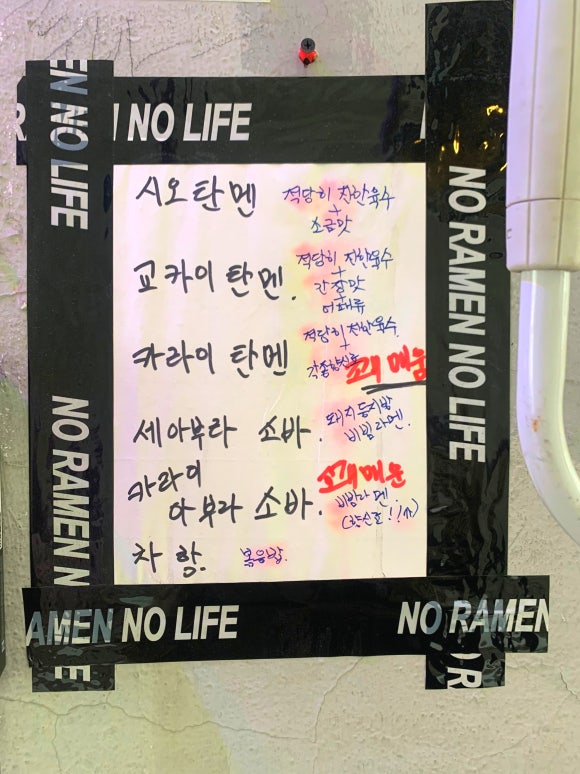 EN NO LIFE
R
N NO LIFE
NO RAMEN NO LIFE
시오탄멘 적당히 진한육수
+
소금맛
교카이탄멘. 적당히 진한육수
+
간장맛
+
어패류
카라이 탄멘 적당히 진한육수
+
각종향신료
꼬래 매움
세아부라 소바. 돼지등지방
비빔라멘.
카라이 꼬래매운
아부라 소바. 비빔라멘.
(향신료!!↑)
차항. 볶음밥.
NO RAMEN N
AMEN NO LIFE
NO RAMEN
E
O R